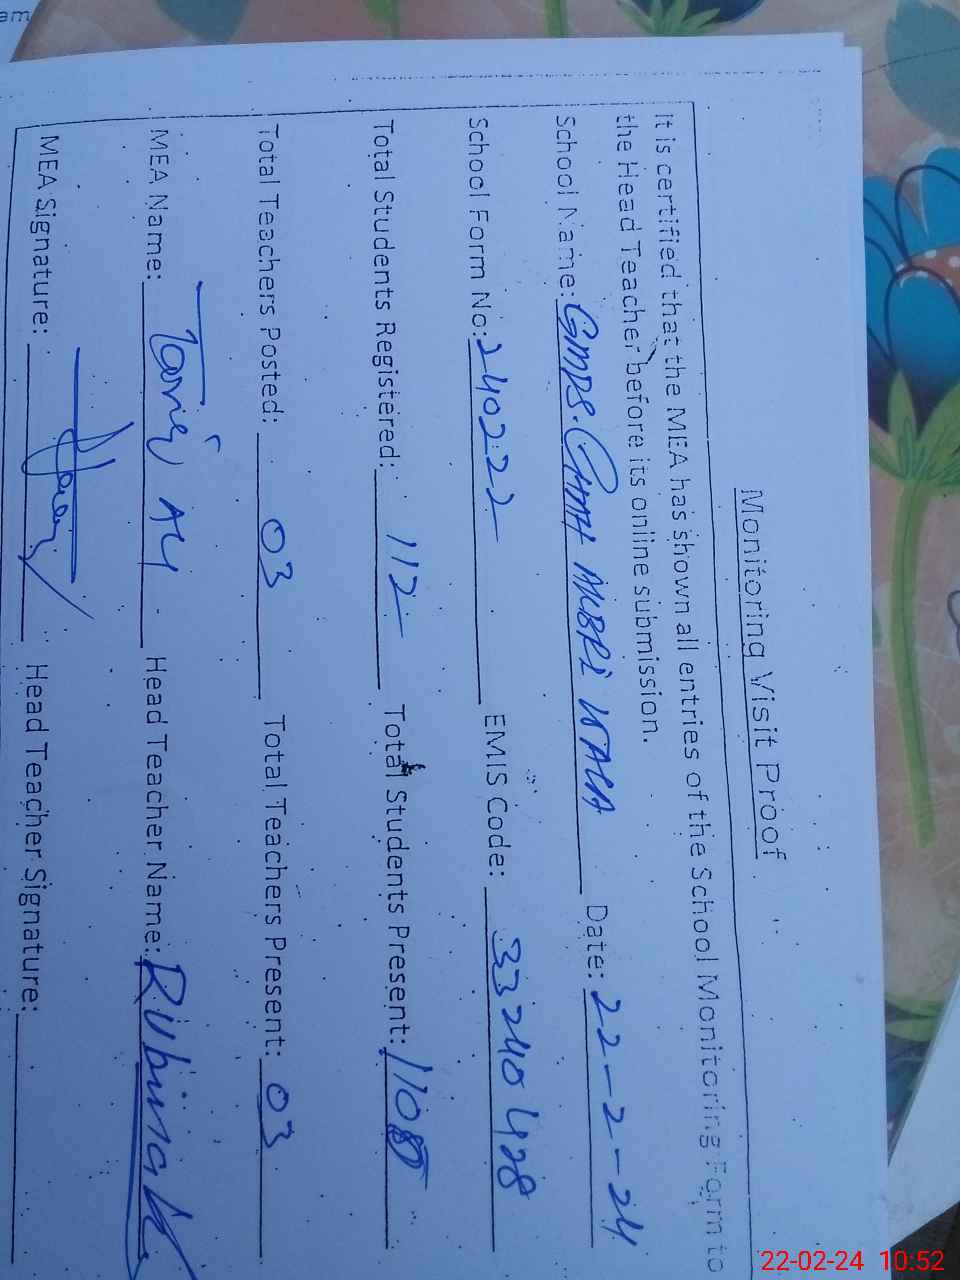 Monitoring Visit Proof
It is certified that the MEA has shown all entries of the School Monitoring Form to
the Head Teacher before its online submission.
School Name: GMPS. Date: 22-2-24
School Form No: 240222 EMIS Code: 33240428
Total Students Registered: 112 Total Students Present:
Total Teachers Posted: 03 Total Teachers Present: 03
MEA Name: Head Teacher Name: Rubina
MEA Signature: Head Teacher Signature:
22-02-24 10:52